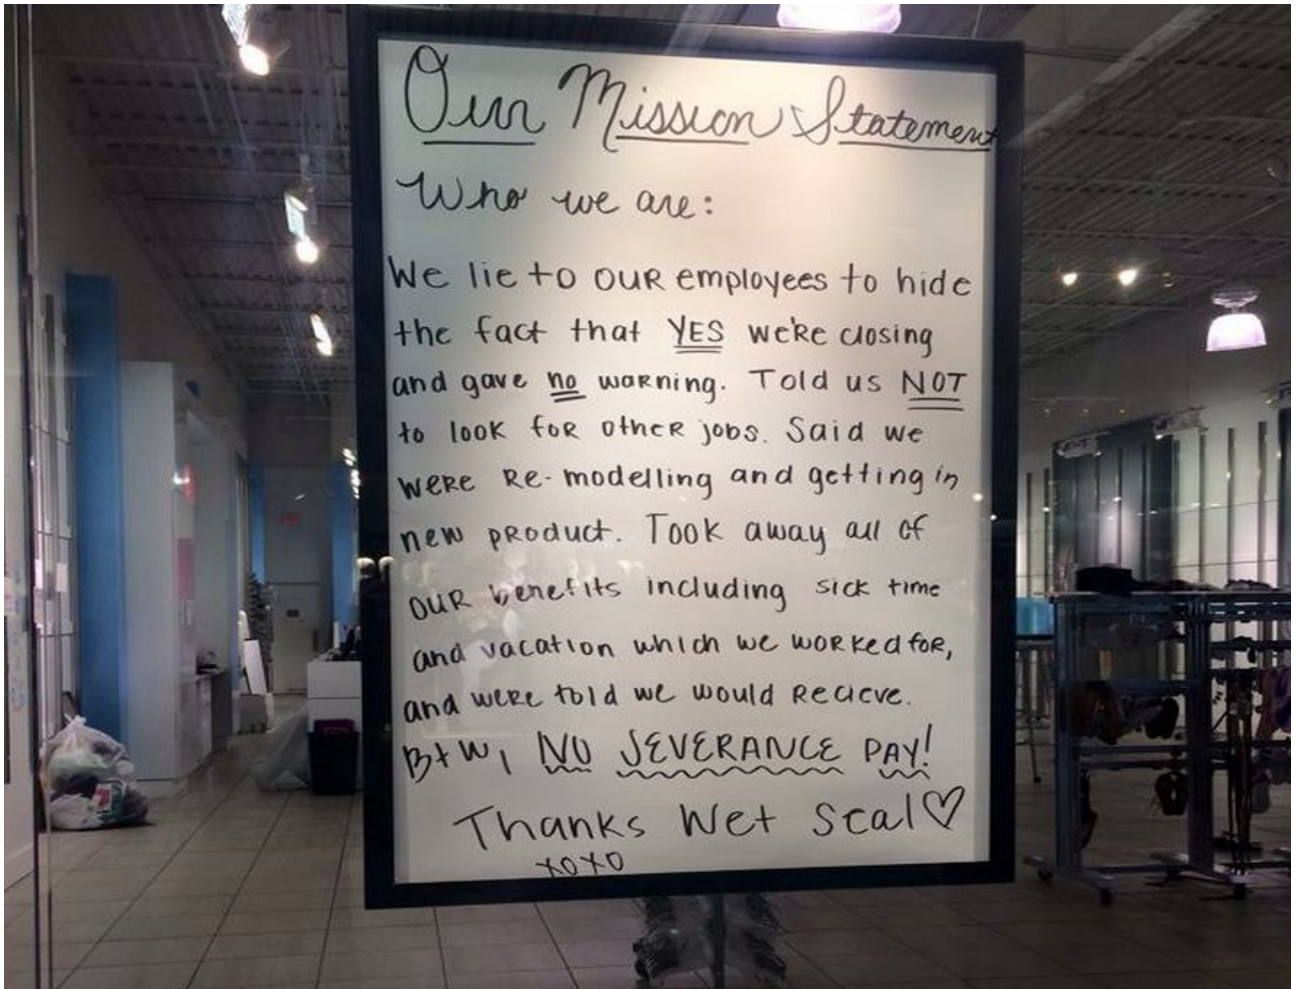 Our Mission Statement
Who we are:
We lie to OUR employees to hide
the fact that YES we're closing
and gave no warning. Told us NOT
to look for other jobs. Said we
were Re-modelling and getting in
new product. Took away all of
our benefits including sick time
and vacation which we worked for,
and were told we would recieve.
Btw, NO SEVERANCE PAY!
Thanks Wet Seal♡
xoxo